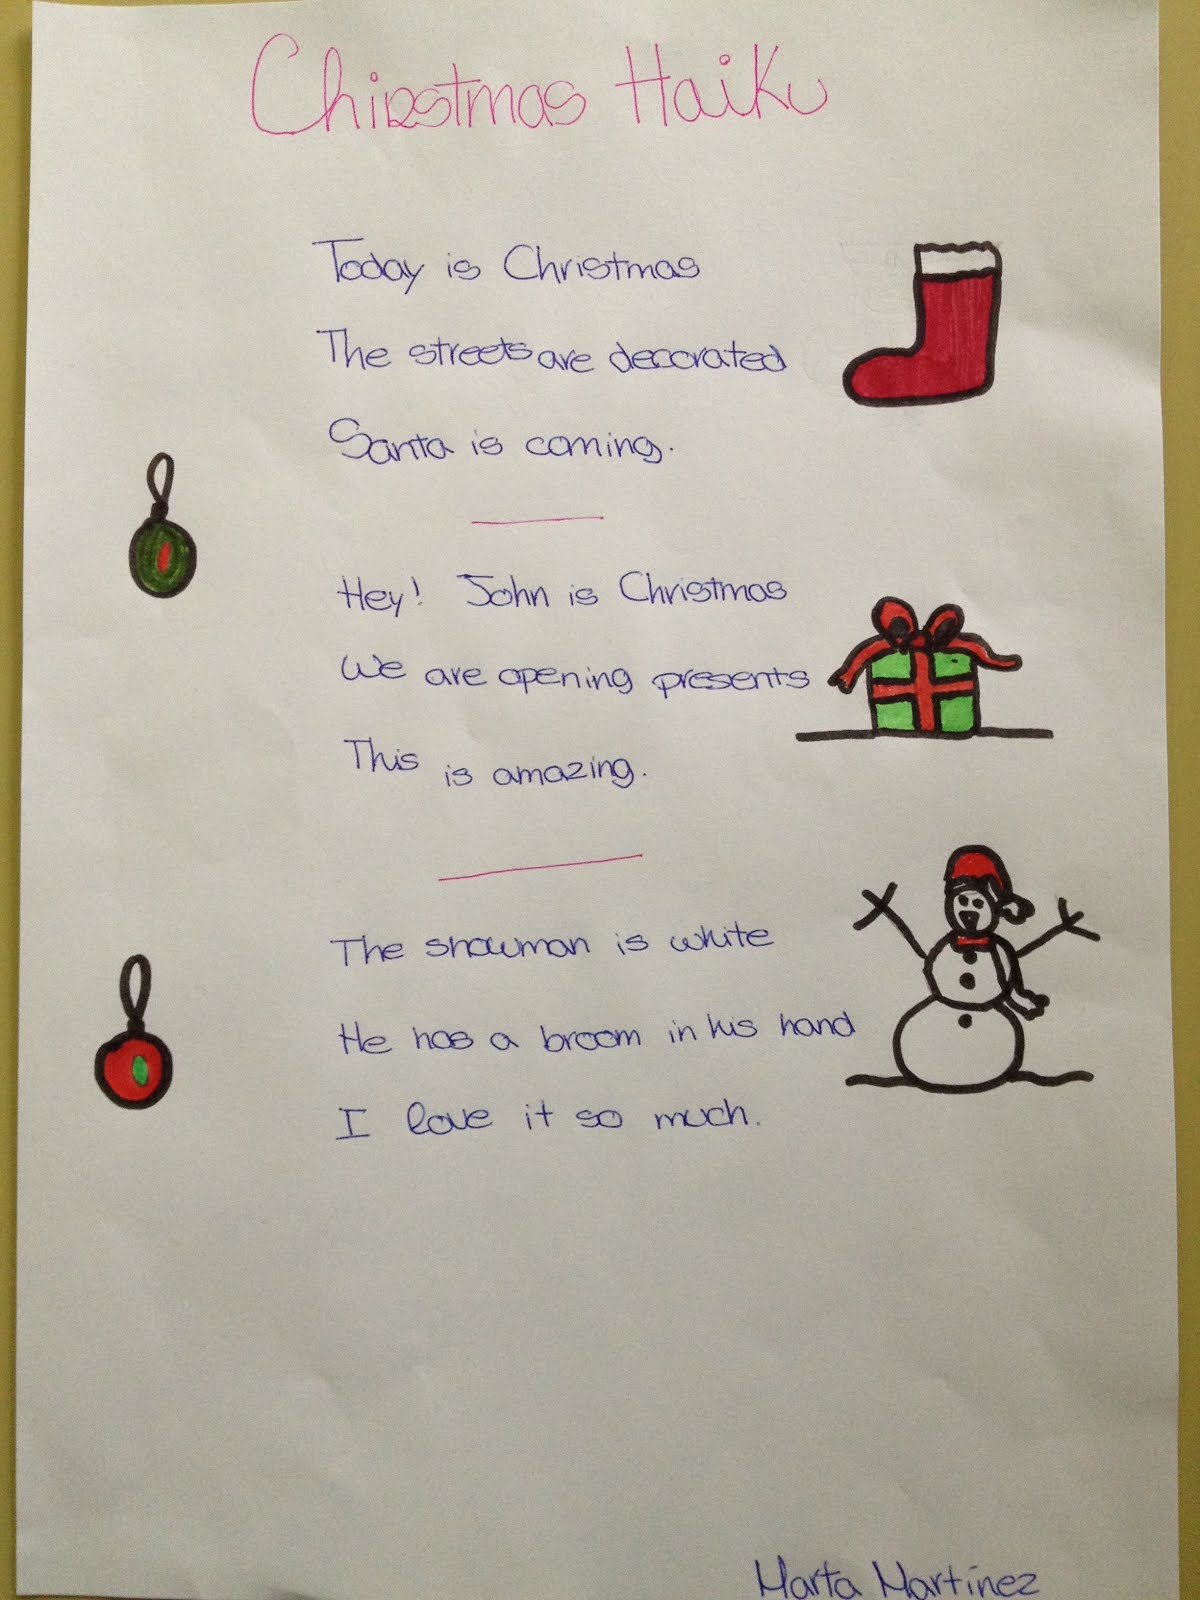 Chirstmas Haiku
Today is Christmas
The streets are decorated
Santa is coming.
Hey! John is Christmas
We are opening presents
This is amazing.
The snowman is white
He has a broom in his hand
I love it so much.
Marta Martínez